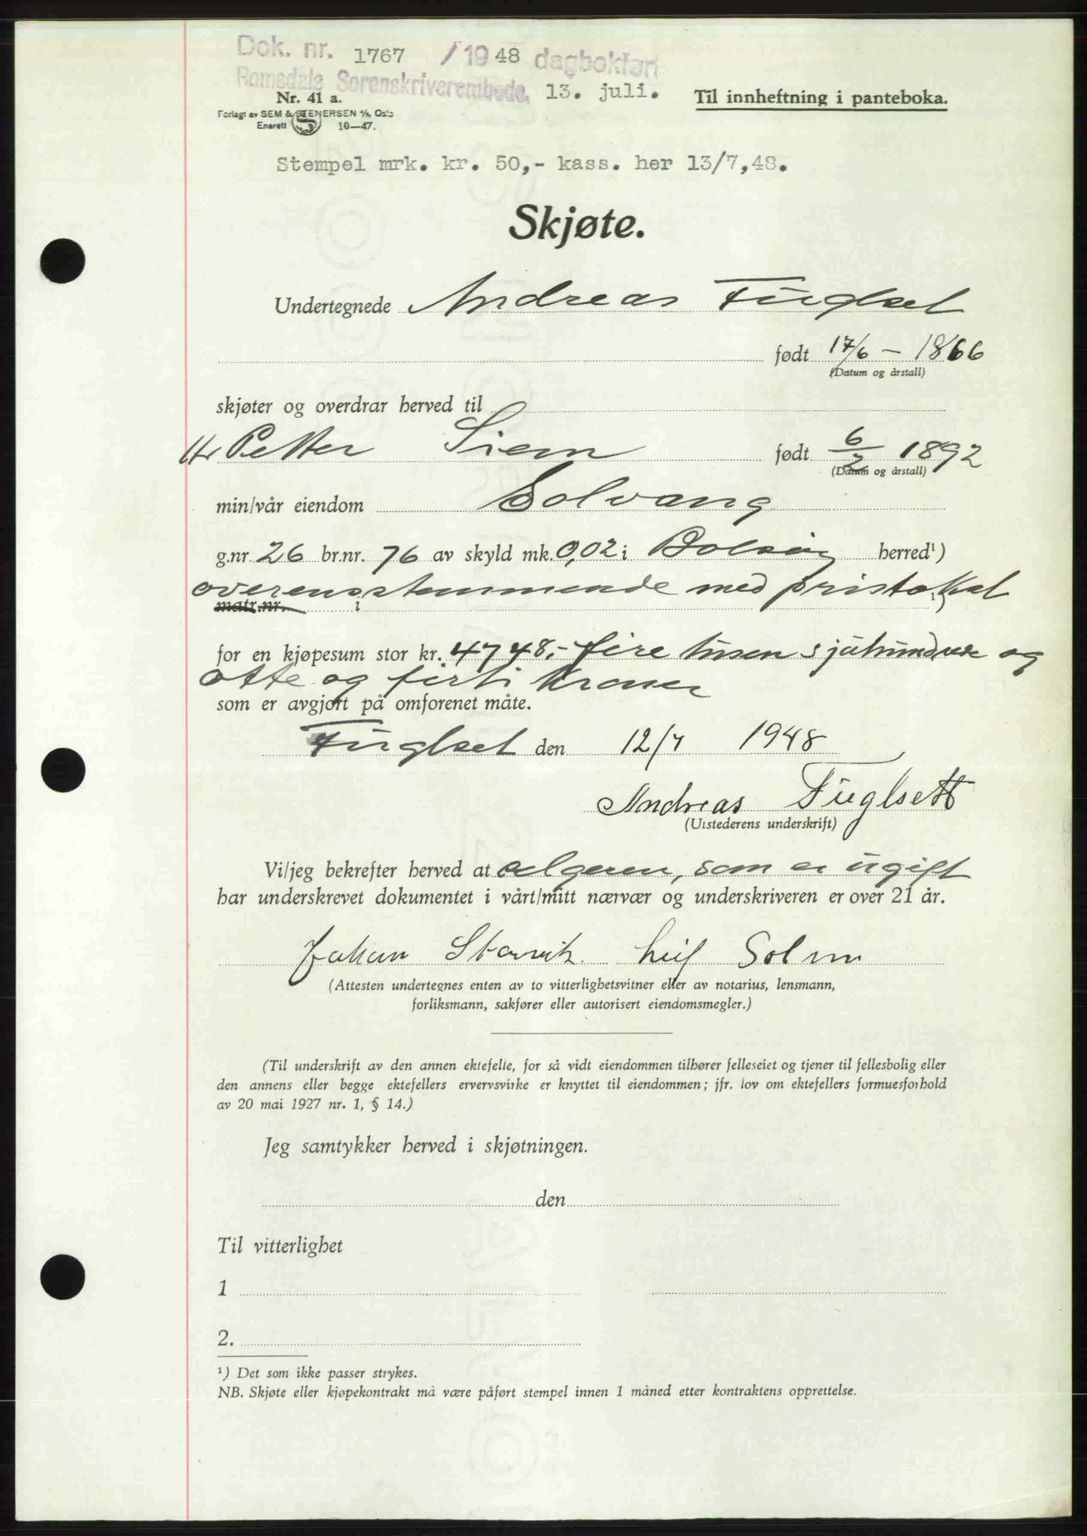 Dok. nr. 1767 /1948 dagbokført
Romsdals Sorenskriverembede, 13. juli.
Nr. 41 a.
Til innheftning i panteboka.
Forlagt av SEM & STENERSEN A/S, Oslo
Enerett 10—47.
Stempel mrk. kr. 50,- kass. her 13/7,48.
Skjøte.
Undertegnede Andreas Fuglset
født 17/6 - 1866
(Datum og årstall)
skjøter og overdrar herved til
Hr Petter Siem født 6/2 1892
(Datum og årstall)
min/vår eiendom Solvang
g.nr. 26 br.nr. 76 av skyld mk. 0,02 i Bolsøy herred¹)
overensstemmende med pristakst
matr.nr. i
for en kjøpesum stor kr. 4748,- fire tusen sjuhundrede og
otte og førti kroner
som er avgjort på omforenet måte.
Fuglset den 12/7 1948
Andreas Fuglsett
(Utstederens underskrift)
Vi/jeg bekrefter herved at selgeren, som er ugift
har underskrevet dokumentet i vårt/mitt nærvær og underskriveren er over 21 år.
Johan Stavik Leif Solem
(Attesten undertegnes enten av to vitterlighetsvitner eller av notarius, lensmann,
forliksmann, sakfører eller autorisert eiendomsmegler.)
(Til underskrift av den annen ektefelle, for så vidt eiendommen tilhører felleseiet og tjener til fellesbolig eller
den annens eller begge ektefellers ervervsvirke er knyttet til eiendommen; jfr. lov om ektefellers formuesforhold
av 20 mai 1927 nr. 1, § 14.)
Jeg samtykker herved i skjøtningen.
den
Til vitterlighet
1
2.
¹) Det som ikke passer strykes.
NB. Skjøte eller kjøpekontrakt må være påført stempel innen 1 måned etter kontraktens opprettelse.